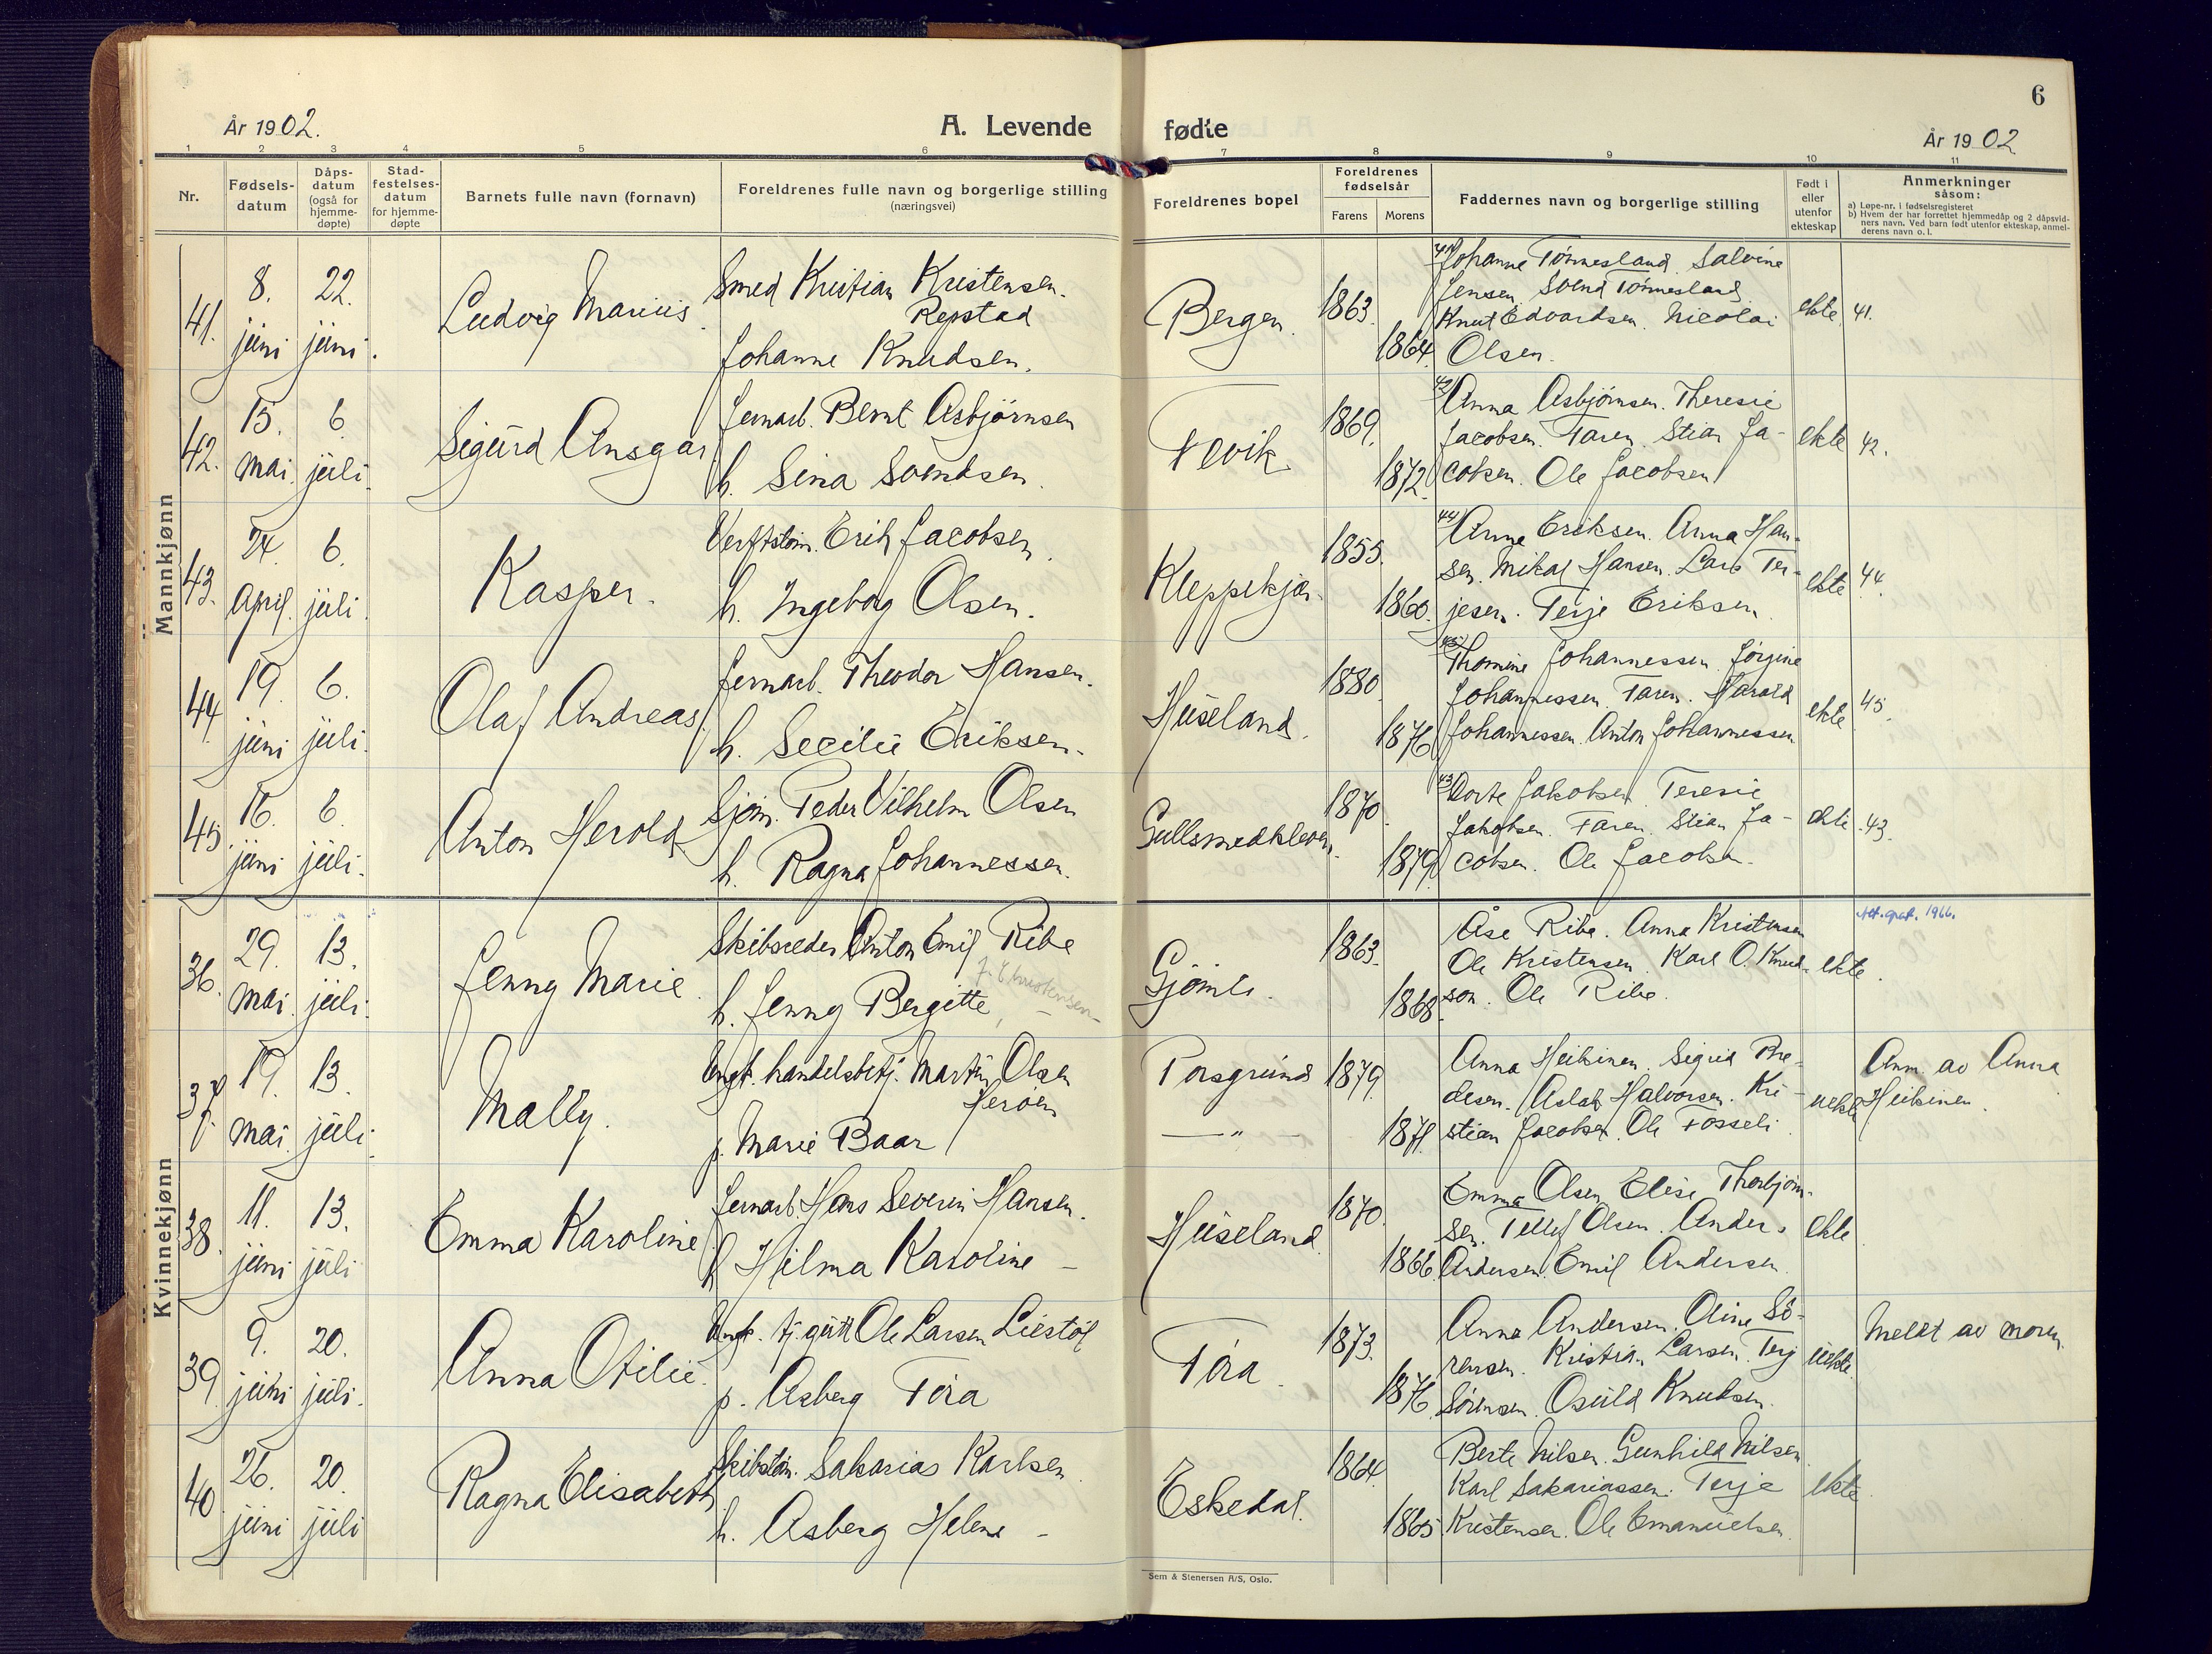 År 1902.
A. Levende
fødte
6
År 1902
1 2 3 4 5 6 7 8 9 10 11
Nr.
Fødsels-
datum
Dåps-
datum
(også for
hjemme-
døpte)
Stad-
festelses-
datum
for hjemme-
døpte
Barnets fulle navn (fornavn)
Foreldrenes fulle navn og borgerlige stilling
(næringsvei)
Foreldrenes bopel
Foreldrenes
fødselsår
Farens
Morens
Faddernes navn og borgerlige stilling
Født i
eller
utenfor
ekteskap
Anmerkninger
såsom:
a) Løpe-nr. i fødselsregisteret
b) Hvem der har forrettet hjemmedåp og 2 dåpsvid-
ners navn. Ved barn født utenfor ekteskap, anmel-
derens navn o. l.
Mannkjønn
41.
8.
juni
22.
juni.
Ludvig Marius
Smed Kristian Kristensen.
Repstad
Johanne Knudsen.
Bergen.
1863.
1864
41) Johanne Tönnesland. Salvine
Jensen. Svend Tönnesland
Knut Edvardsen. Nicolai
Olsen.
ekte
41.
42.
15.
mai
6
juli.
Sigurd Ansgar
Jernarb. Bernt Asbjörnsen
h. Sina Svendsen.
Fevik
1869.
1872.
42) Anna Asbjörnsen. Theresie
Jacobsen. Faren. Stian Ja-
cobsen. Ole Jacobsen
ekte
42.
43.
24.
April.
6.
juli.
Kasper.
Verftstöm. Erik Jacobsen.
h. Ingeborg Olsen.
Kleppekjær.
1855.
1860.
44) Anne Eriksen. Anna Han-
sen. Mikal Hansen. Lars Ter-
jesen. Terje Eriksen.
ekte
44.
44.
19.
juni
6.
juli.
Olaf Andreas
Jernarb. Theodor Hansen.
h. Secilie Eriksen.
Huseland.
1880
1876
45) Thomine Johannessen. Jörgine
Johannessen. Faren. Harald
Johannessen. Anton Johannessen
ekte
45.
45
16.
juni
6
juli.
Anton Herold
Sjöm. Peder Vilhelm Olsen
h. Ragna Johannessen.
Gullsmedkleven.
1870.
1879
43) Dorte Jakobsen Teresie
Jakobsen. Faren. Stian Ja-
cobsen. Ole Jacobsen.
ekte
43.
Kvinnekjønn
36.
29.
mai.
13.
juli.
Jenny Marie.
Skibsreder Anton Emil Ribe
h. Jenny Bergitte
f. Kristensen
Gjömle.
1863.
1868.
Åse Ribe. Anna Kristensen
Ole Kristensen. Karl O. Knud-
son. Ole Ribe.
ekte.
1966.
37
19.
mai
13.
juli.
Mally.
Ungk. handelsbetj. Martin Olsen
Heröen
p. Marie Baar
Porsgrund
— " —
1879.
1871.
Anna Heikinen. Sigrid Pre-
desen. Aslak Halvorsen. Kri-
stian Jacobsen. Ole Fosseli.
uekte
Anm. av Anna
Heikinen.
38.
11.
juni
13.
juli
Emma Karoline
Jernarb. Hans Severin Hansen.
h Hilma Karoline —
Huseland.
1870.
1866.
Emma Olsen. Elise Thorbjörn-
sen. Tellef Olsen. Anders
Andersen. Emil Andersen.
ekte
39.
9.
juni
20.
juli.
Anna Otilie.
Ungk. tj.gutt Ole Larsen Liestöl
p. Asberg Föra
Föra.
1873.
1876.
Anna Andersen. Oline Sö-
rensen. Kristian Larsen. Terj
Sörensen. Osuld Knudsen.
uekte.
Meldt av moren.
40
26.
juni
20.
juli
Ragna Elisabeth
Skibstöm. Sakarias Karlsen.
h. Asberg Helene —
Eskedal.
1864.
1865.
Berte Nilsen. Gunhild Nilsen.
Karl Sakariassen. Terje
Kristensen. Ole Emanuelsen.
ekte
Sem & Stenersen A/S, Oslo.